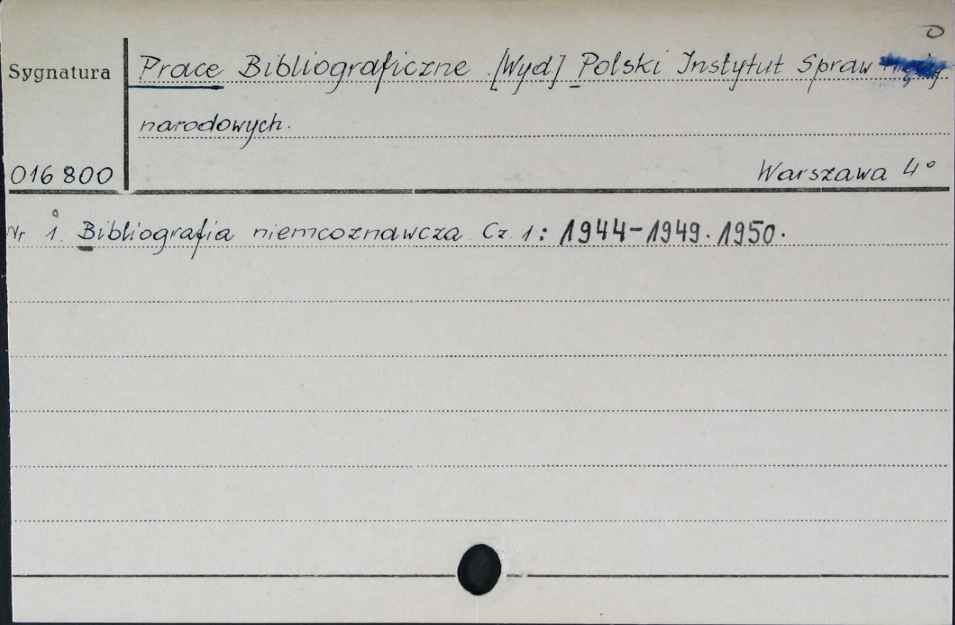 Sygnatura
Prace Bibliograficzne [Wyd] Polski Instytut Spraw
narodowych.
016 800
Warszawa 4°
Nr 1. Bibliografia niemcoznawcza Cz. 1: 1944-1949. 1950.